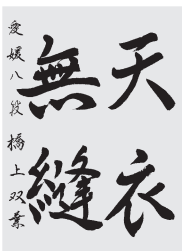 天衣
無縫
愛媛八段 橋上双葉